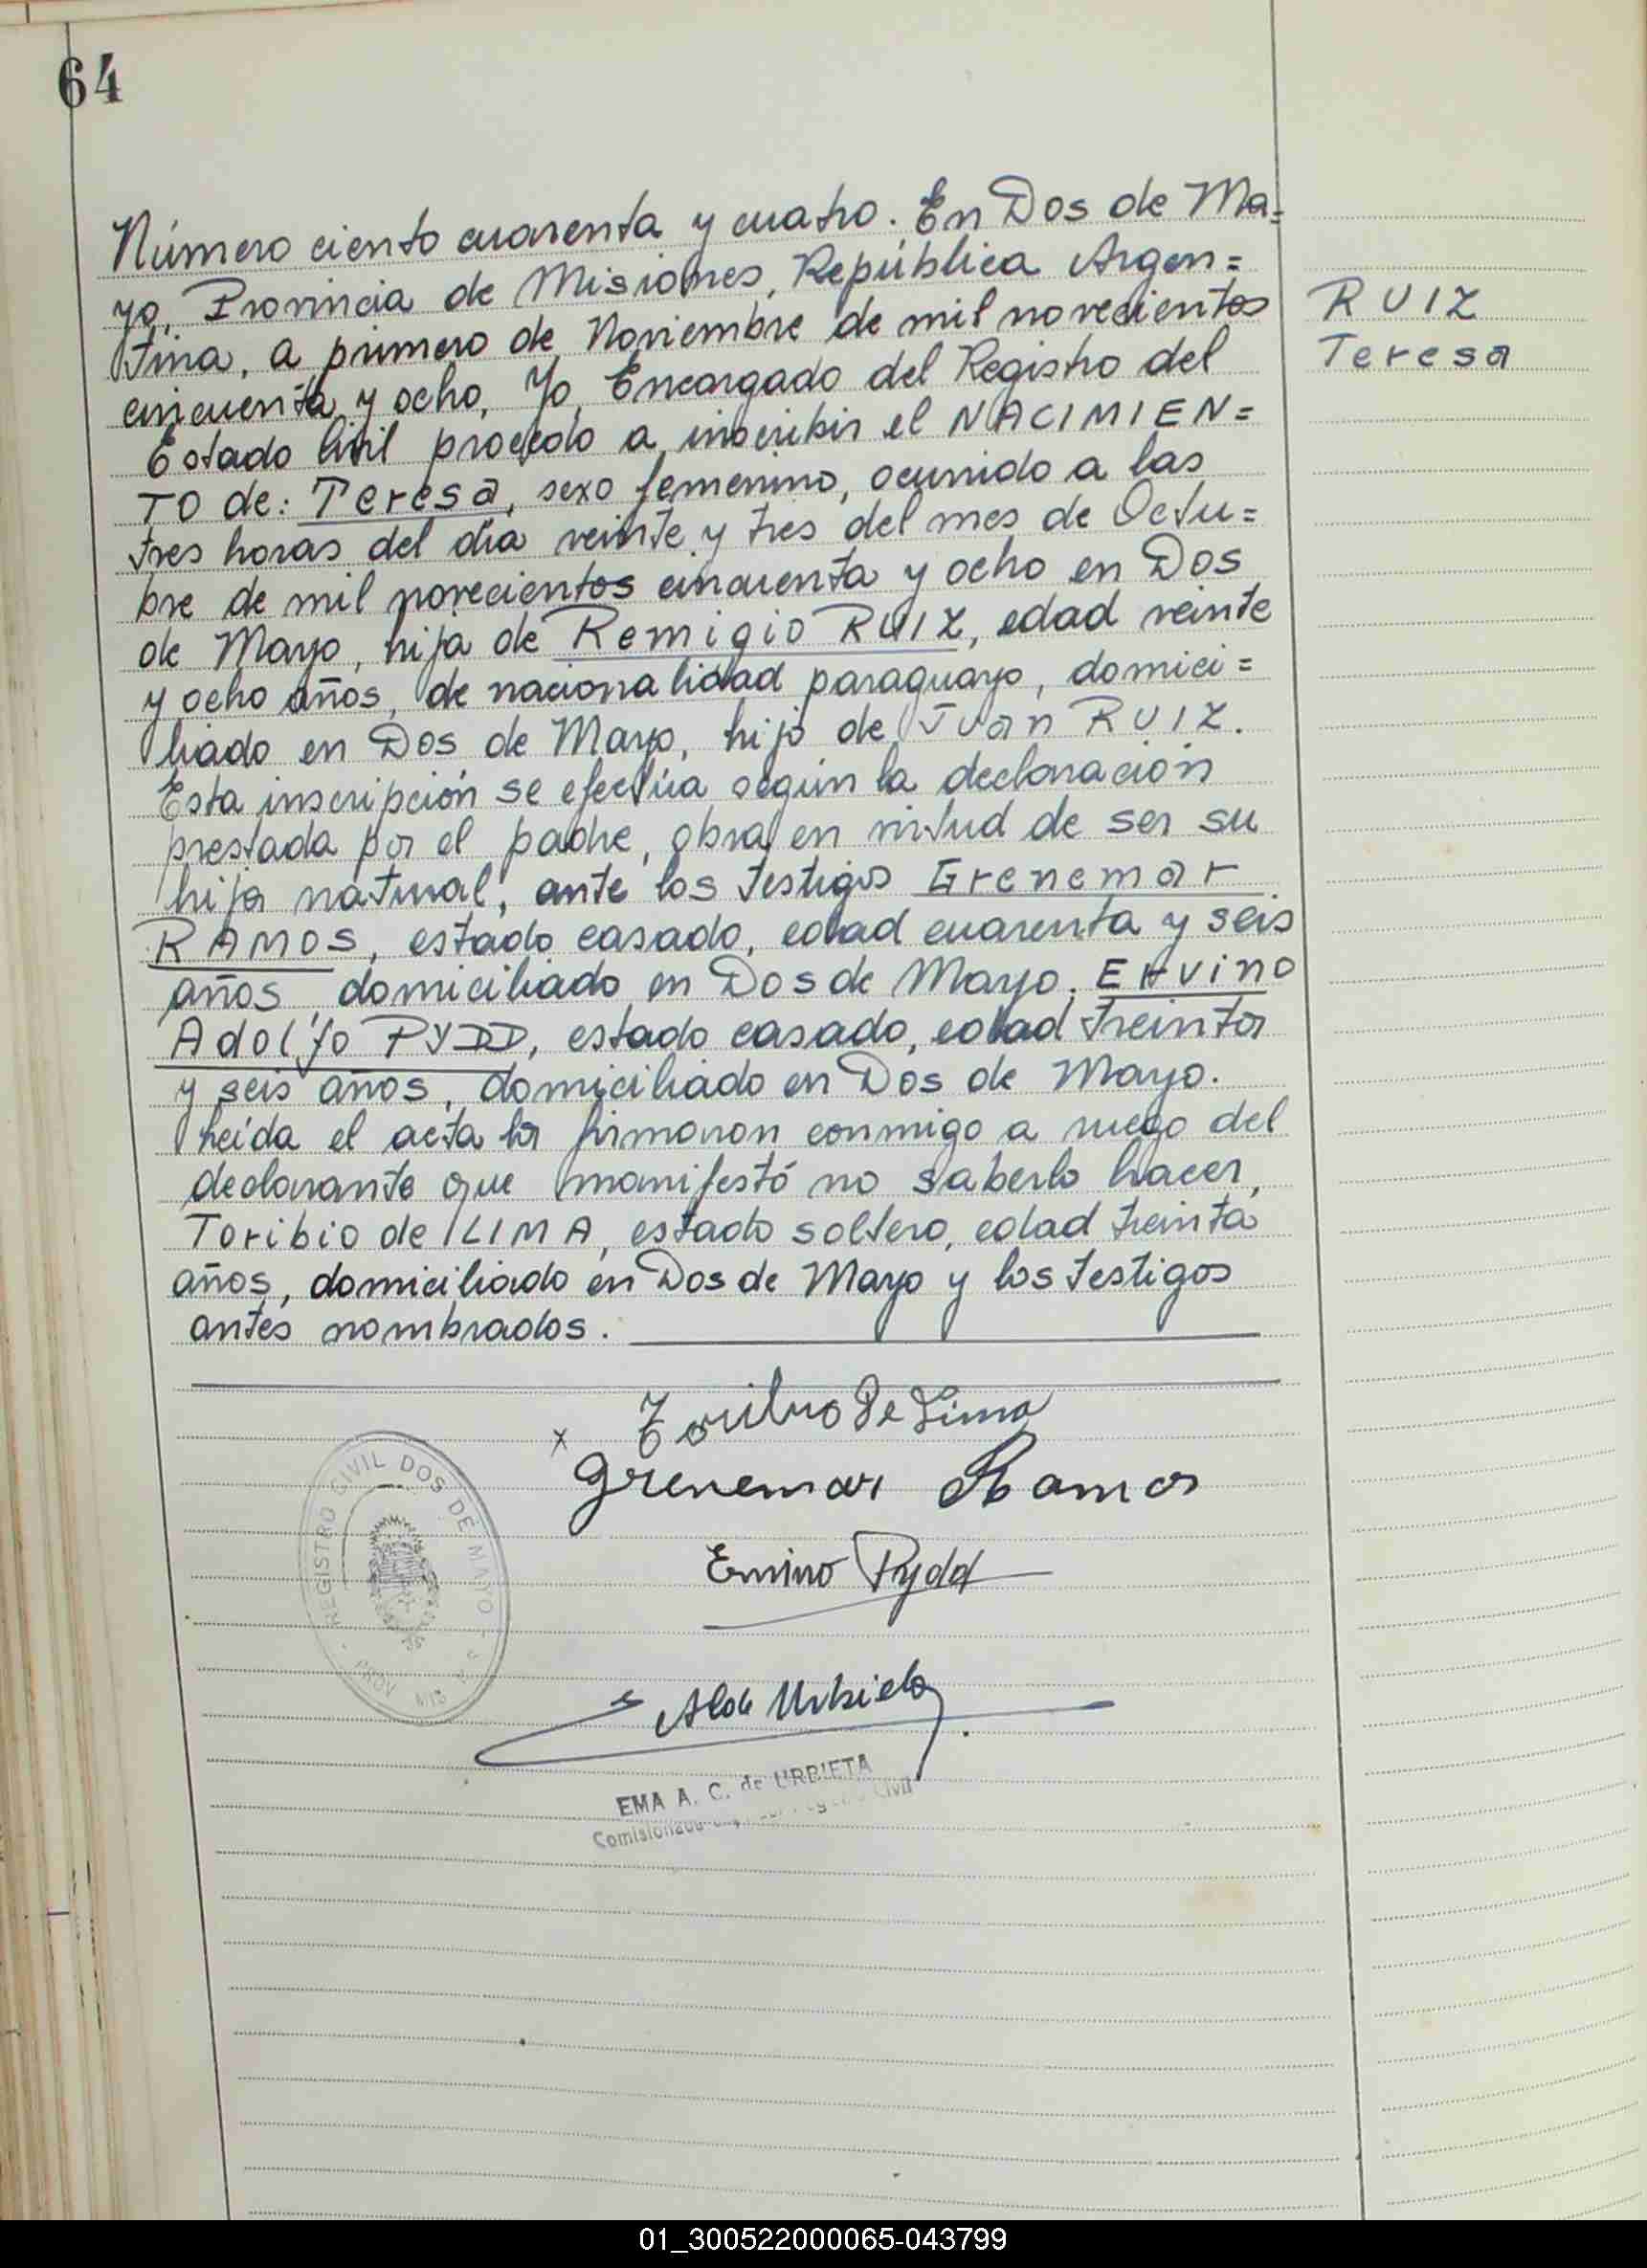 64
Número ciento cuarenta y cuatro. En Dos de Ma=
yo, Provincia de Misiones, República Argen=
tina, a primero de Noviembre de mil novecientos
cincuenta y ocho, Yo, Encargado del Registro del
Estado Civil procedo a inscribir el NACIMIEN=
TO de: Teresa, sexo femenino, ocurrido a las
tres horas del día veinte y tres del mes de Octu=
bre de mil novecientos cincuenta y ocho en Dos
de Mayo, hija de Remigio RUIZ, edad veinte
y ocho años, de nacionalidad paraguayo, domici=
liado en Dos de Mayo, hijo de Juan RUIZ.
Esta inscripción se efectúa según la declaración
prestada por el padre, obra en virtud de ser su
hija natural, ante los testigos Grenemar
RAMOS, estado casado, edad cuarenta y seis
años, domiciliado en Dos de Mayo. Ervino
Adolfo PYDD, estado casado, edad treinta
y seis años, domiciliado en Dos de Mayo.
Leída el acta la firmaron conmigo a ruego del
declarante que manifestó no saberlo hacer,
Toribio de LIMA, estado soltero, edad treinta
años, domiciliado en Dos de Mayo y los testigos
antes nombrados.
RUIZ
Teresa
x Toribio De Lima
Grenemar Ramos
Ervino Pydd
REGISTRO CIVIL DOS DE MAYO
PROV MIS
Urbieta
EMA A. C. de URBIETA
Civil
01_300522000065-043799